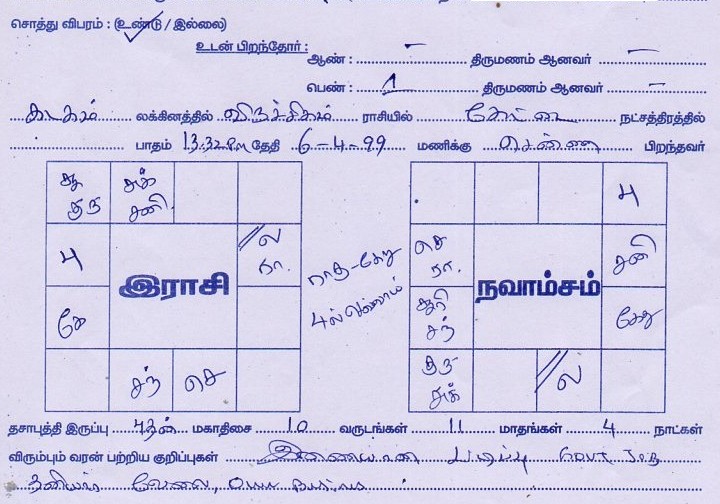 சொத்து விபரம் : (உண்டு / இல்லை)
உடன் பிறந்தோர் :
ஆண் : – திருமணம் ஆனவர் –
பெண் : 1 திருமணம் ஆனவர் –
கடகம் லக்கினத்தில் விருச்சிகம் ராசியில் கேட்டை நட்சத்திரத்தில்
பாதம் 13.32 PM தேதி 6-4-99 மணிக்கு சென்னை பிறந்தவர்
சூ குரு
சுக் சனி
பு
ல ரா.
இராசி
கே
சந் செ
ராகு-கேது
பு
செ ரா.
சனி
நவாம்சம்
சூரி சந்
கேது
குரு சுக்
ல
தசாபுத்தி இருப்பு புதன் மகாதிசை 10 வருடங்கள் 11 மாதங்கள் 4 நாட்கள்
விரும்பும் வரன் பற்றிய குறிப்புகள் இணையான படிப்பு Govt Job
தனியார் வேலை,